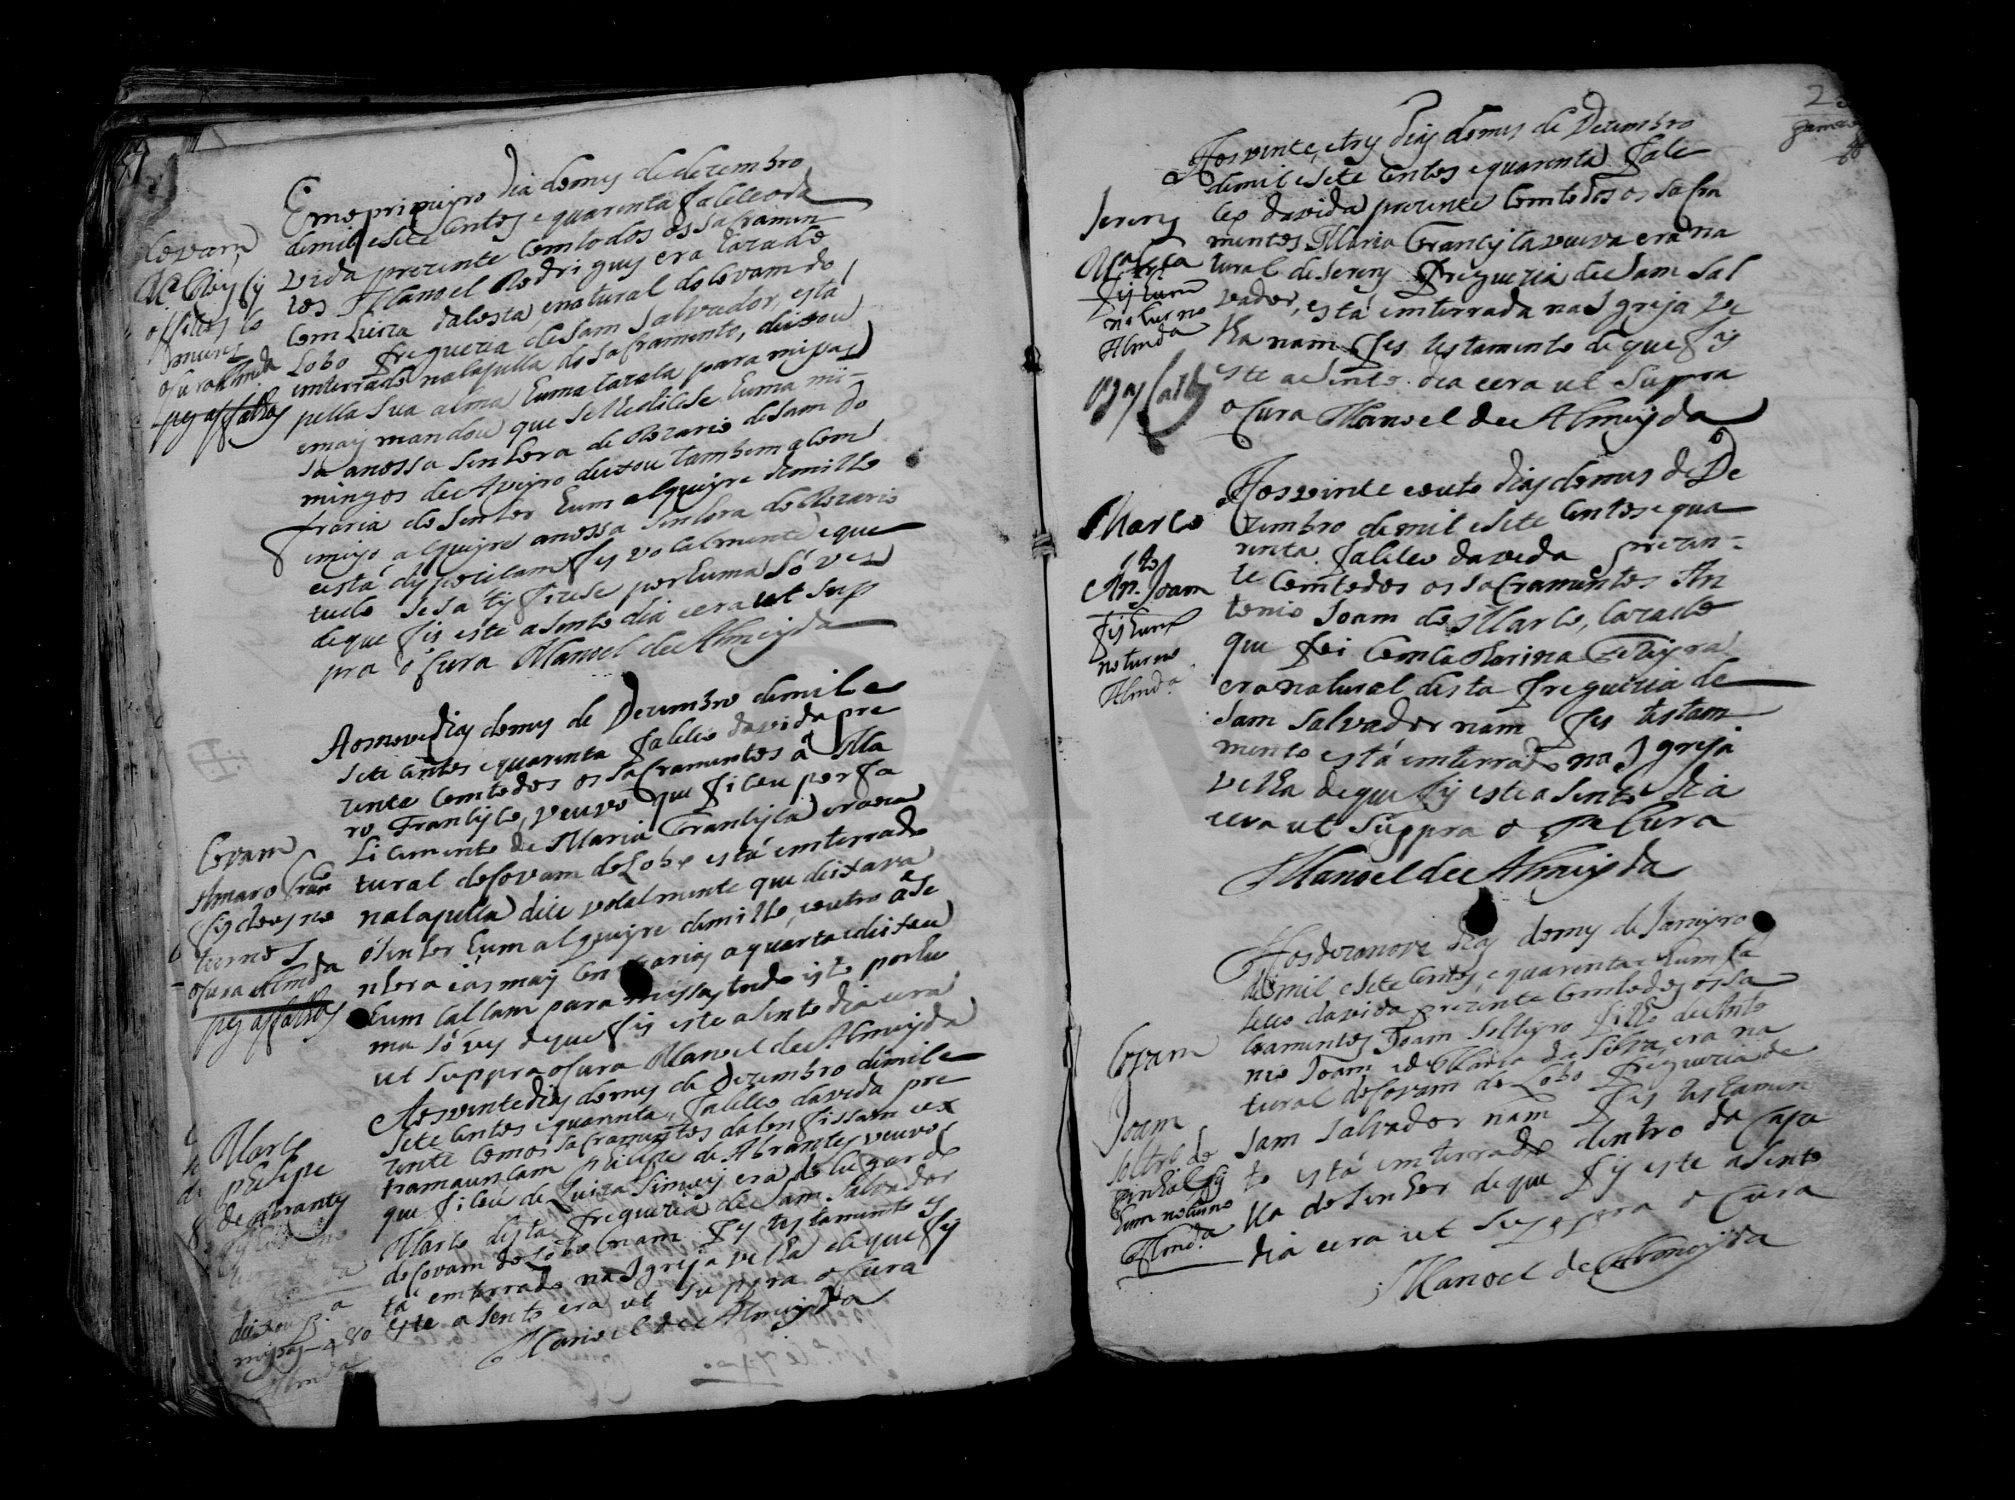 Em o primeyro dia do mes de dezembro
de mil e sete centos e quarenta faleceo da
vida prezente com todos os sacramen
tos Manoel Rodriguez era cazado
com Luiza da Costa e natural do Covam do
Lobo freguezia de Sam Salvador, está
emterrado na capella do Sacramento, deixou
pella sua alma huma cazala para missas
e mais mandou que se lhe dicese huma mi-
sa a nossa Senhora do Rozario de Sam Do
mingos de Aveyro deixou tambem a com
fraria do Senhor hum alqueyre de milho
e meyo alqueyre a nossa Senhora do Rozario
esta dispociçam fes vocalmente e que
tudo se satisfizese por huma só ves
de que fis este asento dia e era ut sup
pra o Cura Manoel de Almeyda
Covam
officios
o Cura Almeida
pg as falhas
Aos nove dias do mes de Dezembro de mil e
sete centos e quarenta faleceo da vida pre
zente com todos os sacramentos a Ma
ro Francisco, veuvo que ficou por fa
licimento de Maria Francisca era na
tural do Covam do Lobo está emterrado
na capella dice vocalmente que deixava
o Senhor hum alqueyre de milho, e outro a Se
nhora e as mais confrarias a quarta e deixou
hum callam para missas tudo isto por hu
ma só ves de que fis este asento dia e era
ut suppra o Cura Manoel de Almeyda
Covam
Amaro Fran
fis dous no
turnos
o Cura Almda
pg as falhas
Aos vinte dias do mes de Dezembro de mil e
sete centos e quarenta, faleceo da vida pre
zente com os sacramentos da comfissam e ex
trama unsam Phelipe de Abrantes veuvo
que ficou de Luiza Simois era do lugar do
Marco desta freguezia de Sam Salvador
do Covam do Lobo nam fes testamento es
tá emterrado na Igreja velha de que fis
este asento era ut suppra o Cura
Manoel de Almeyda
Marco
Phelipe
de Abrantes
deixou
missas 480
Almda
Aos vinte e tres dias do mes de Dezembro
de mil e sete centos e quarenta fale
ceo da vida prezente com todos os sacra
mentos Maria Francisca veuva era na
tural de Jerens freguezia de Sam Sal
vador, está emterrada na Igreja ve
lha nam fes testamento de que fis
este asento dia e era ut suppra
o Cura Manoel de Almeyda
Jerens
fis hum
noturno
Almda
Aos vinte e outo dias do mes de De
zembro de mil e sete centos e qua
renta faleceo da vida prezen-
te com todos os sacramentos An
tonio Joam do Marco, cazado
que foi com Catharina Ferreyra
era natural desta freguezia de
Sam Salvador nam fes testam
mento está emterrado na Igreja
velha de que fis este asento dia
e era ut suppra o Cura
Manoel de Almeyda
Marco
An.to Joam
fis hum
noturno
Almd.a
Aos dezanove dias do mes de Janeyro
de mil e sete centos, e quarenta e hum fa
leceo da vida prezente com todos os sa
cramentos Joam solteyro filho de Anto
nio Joam e de Maria da Silva, era na
tural do Covam do Lobo freguezia de
Sam Salvador nam fes testamen
to está emterrado dentro da Capa
lla do Senhor de que fis este asento
dia e era ut suppra o Cura
Manoel de Almeyda
Covam
Joam
soltro do
Pinhal fis
hum noturno
Almd.a